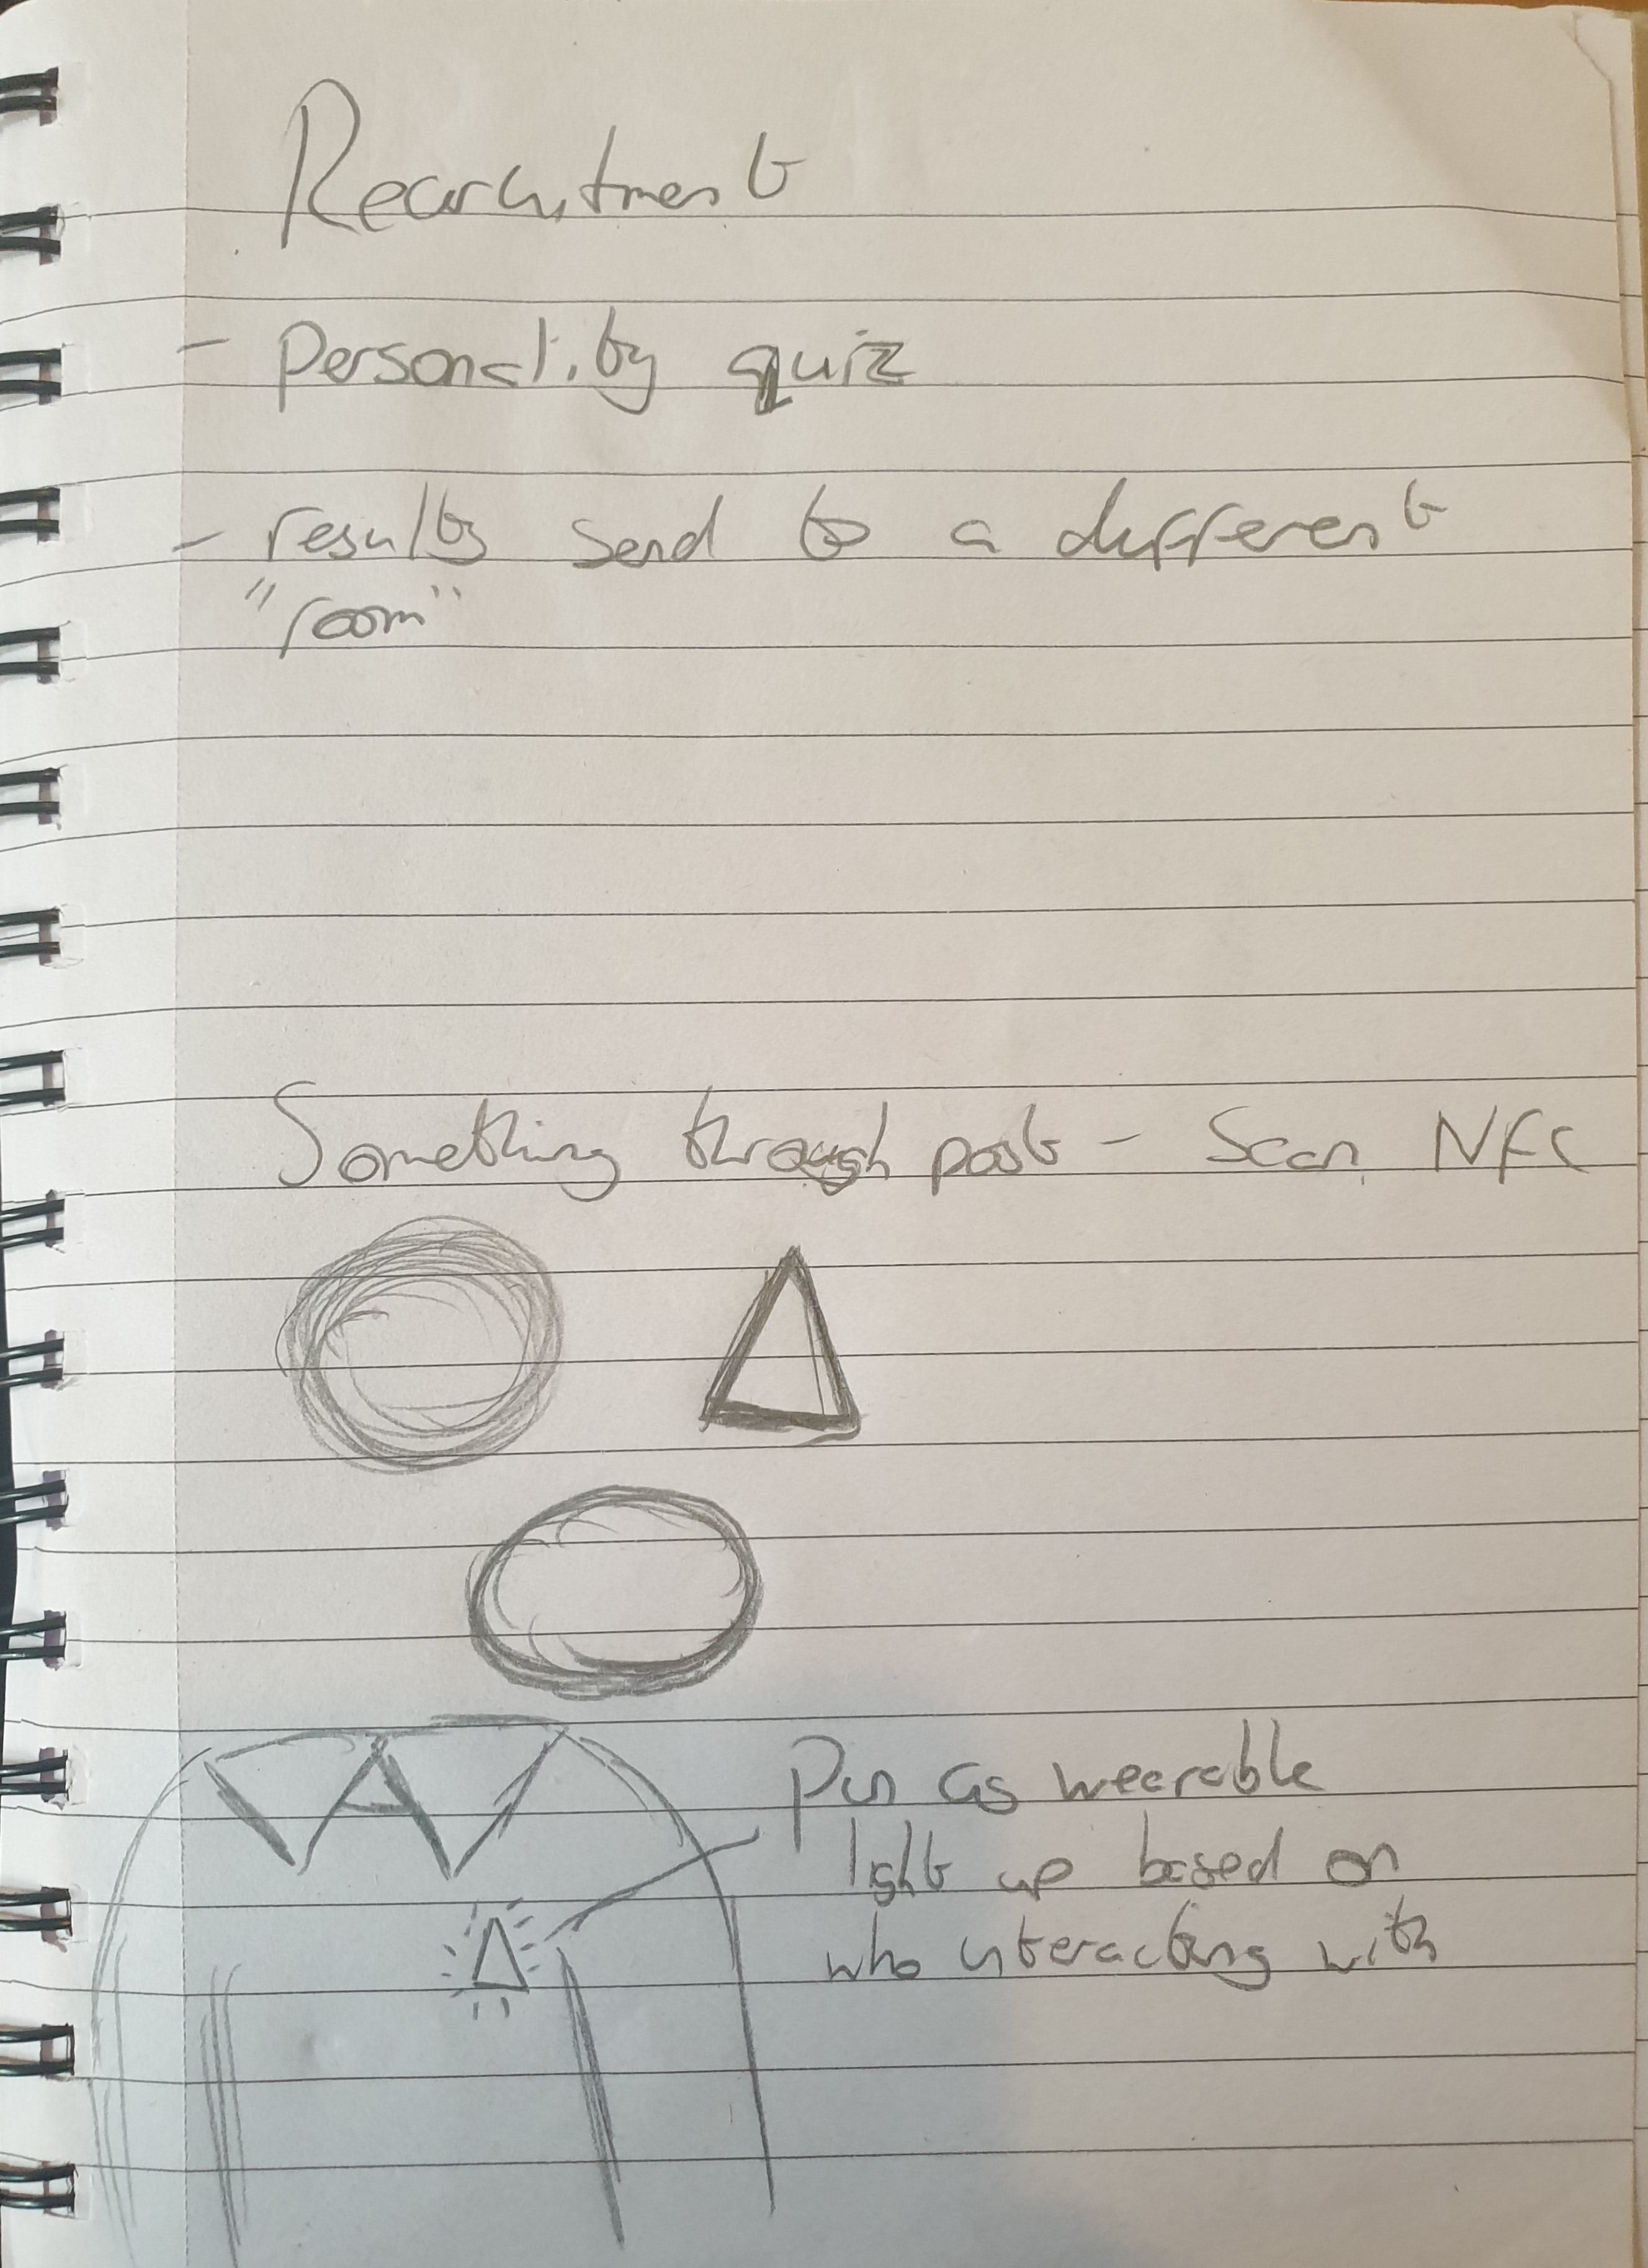 Recruitment
- Personality quiz
- results send to a different
"room"
Something through post - Scan NFC
Pin as wearable
light up based on
who interacting with